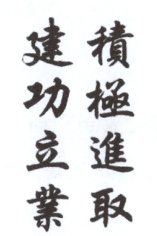 積極進取
建功立業